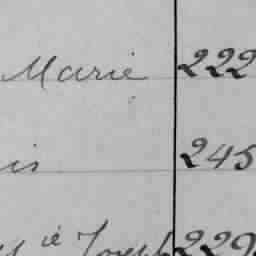 Marie 222
is 245
ié Joseph 229